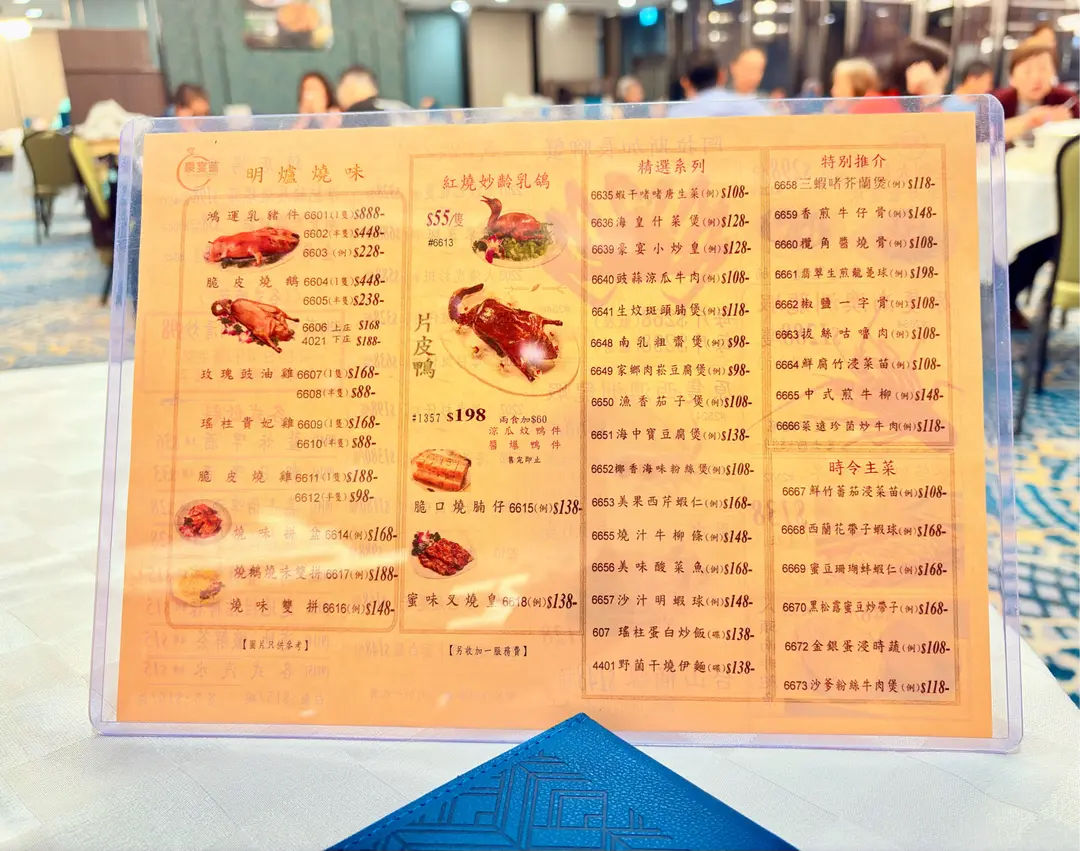 豪宴薈
明爐燒味
鴻運乳豬件 6601(1隻)$888-
6602(半隻)$448-
6603 (例)$228-
脆皮燒鵝 6604(1隻)$448-
6605(半隻)$238-
6606 上庄 $168
4021 下庄 $188-
玫瑰豉油雞 6607(1隻)$168-
6608(半隻)$88-
瑤柱貴妃雞 6609(1隻)$168-
6610(半隻)$88-
脆皮燒雞 6611(1隻)$188-
6612(半隻)$98-
燒味拼盆 6614(例)$168-
燒鵝燒味雙拼 6617(例)$188-
燒味雙拼 6616(例)$148-
【圖片只供參考】
紅燒妙齡乳鴿
$55/隻
#6613
片皮鴨
#1357 $198 兩食加$60
涼瓜炆鴨件
醬爆鴨件
售完即止
脆口燒腩仔 6615(例)$138-
蜜味叉燒皇 6618(例)$138-
【另收加一服務費】
精選系列
6635 蝦干啫啫唐生菜(例)$108-
6636 海皇什菜煲(例)$128-
6639 豪宴小炒皇(例)$128-
6640 豉蒜涼瓜牛肉(例)$108-
6641 生炆斑頭腩煲(例)$118-
6648 南乳粗齋煲(例)$98-
6649 家鄉肉崧豆腐煲(例)$98-
6650 漁香茄子煲(例)$108-
6651 海中寶豆腐煲(例)$138-
6652 椰香海味粉絲煲(例)$108-
6653 美果西芹蝦仁(例)$168-
6655 燒汁牛柳條(例)$148-
6656 美味酸菜魚(例)$168-
6657 沙汁明蝦球(例)$148-
607 瑤柱蛋白炒飯(碟)$138-
4401 野菌干燒伊麵(碟)$138-
特別推介
6658 三蝦啫芥蘭煲(例)$118-
6659 香煎牛仔骨(例)$148-
6660 欖角醬燒骨(例)$108-
6661 翡翠生煎龍躉球(例)$198-
6662 椒鹽一字骨(例)$108-
6663 拔絲咕嚕肉(例)$108-
6664 鮮腐竹浸菜苗(例)$108-
6665 中式煎牛柳(例)$148-
6666 菜遠珍菌炒牛肉(例)$118-
時令主菜
6667 鮮竹蕃茄浸菜苗(例)$108-
6668 西蘭花帶子蝦球(例)$168-
6669 蜜豆珊瑚蚌蝦仁(例)$168-
6670 黑松露蜜豆炒帶子(例)$168-
6672 金銀蛋浸時蔬(例)$108-
6673 沙爹粉絲牛肉煲(例)$118-